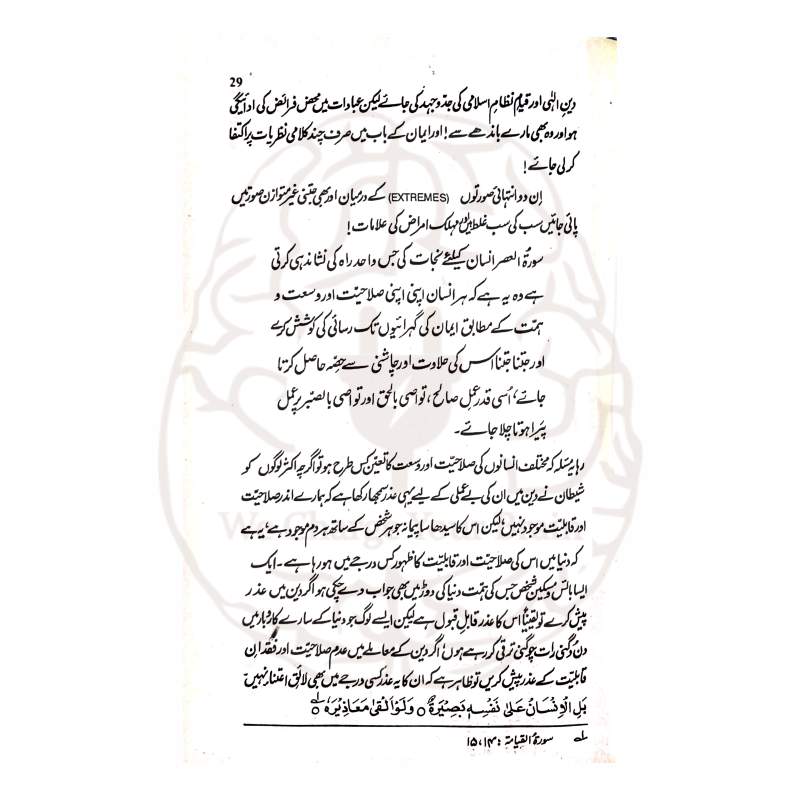 29
دینِ الٰہی اور قیامِ نظامِ اسلامی کی جدوجہد کی جائے لیکن عبادات میں محض فرائض کی ادائیگی
ہو اور وہ بھی مارے باندھے سے! اور ایمان کے باب میں صرف چند کلامی نظریات پر اکتفا
کر لی جائے!
اِن دو انتہائی صورتوں (EXTREMES) کے درمیان اور بھی جتنی غیر متوازن صورتیں
پائی جائیں سب کی سب غلط ہیں اور مہلک امراض کی علامات!
سورۃ العصر انسان کیلئے نجات کی جس واحد راہ کی نشاندہی کرتی
ہے وہ یہ ہے کہ ہر انسان اپنی اپنی صلاحیّت اور وسعت و
ہمّت کے مطابق ایمان کی گہرائیوں تک رسائی کی کوشش کرے
اور جتنا جتنا اس کی حلاوت اور چاشنی سے حصّہ حاصل کرتا
جائے، اُسی قدر عملِ صالح، تواصی بالحق اور تواصی بالصّبر پر عمل
پیرا ہوتا چلا جائے۔
رہا یہ مسئلہ کہ مختلف انسانوں کی صلاحیّت اور وسعت کا تعیّن کس طرح ہو تو اگرچہ اکثر لوگوں کو
شیطان نے دین میں ان کی بے عملی کے لیے یہی عذر سمجھا رکھا ہے کہ ہمارے اندر صلاحیّت
اور قابلیّت موجود نہیں، لیکن اس کا سیدھا سا پیمانہ جو ہر شخص کے ساتھ ہر دم موجود ہے، یہ ہے
کہ دنیا میں اس کی صلاحیّت اور قابلیّت کا ظہور کس درجے میں ہو رہا ہے۔ ایک
ایسا بائس و مسکین شخص جس کی ہمّت دنیا کی دوڑ میں بھی جواب دے چکی ہو اگر دین میں عذر
پیش کرے تو یقیناً اس کا عذر قابلِ قبول ہے لیکن ایسے لوگ جو دنیا کے سارے کاروبار میں
دن دُگنی رات چوگنی ترقی کر رہے ہوں، اگر دین کے معاملے میں عدم صلاحیّت اور فقدانِ
قابلیّت کے عذر پیش کریں تو ظاہر ہے کہ ان کا یہ عذر کسی درجے میں بھی لائقِ اعتنا نہیں
بَلِ الْاِنْسَانُ عَلٰی نَفْسِهٖ بَصِیْرَةٌ ○ وَلَوْ اَلْقٰی مَعَاذِیْرَهٗ ○ ؎۱
؎۱ سورۃ القیامۃ : ۱۴، ۱۵